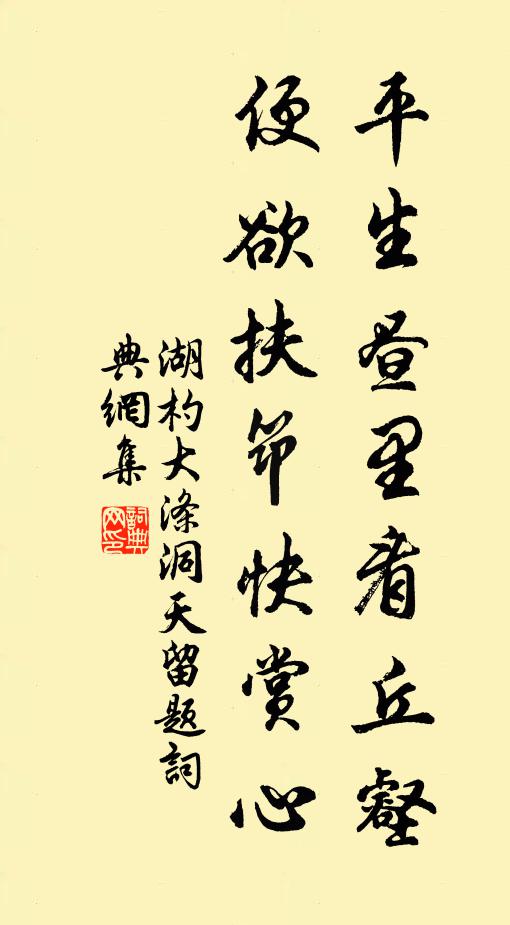 平生昼里看丘壑
便欲扶筇快賞心
湖杓大滌洞天留題詞
典網集
詞典
网印